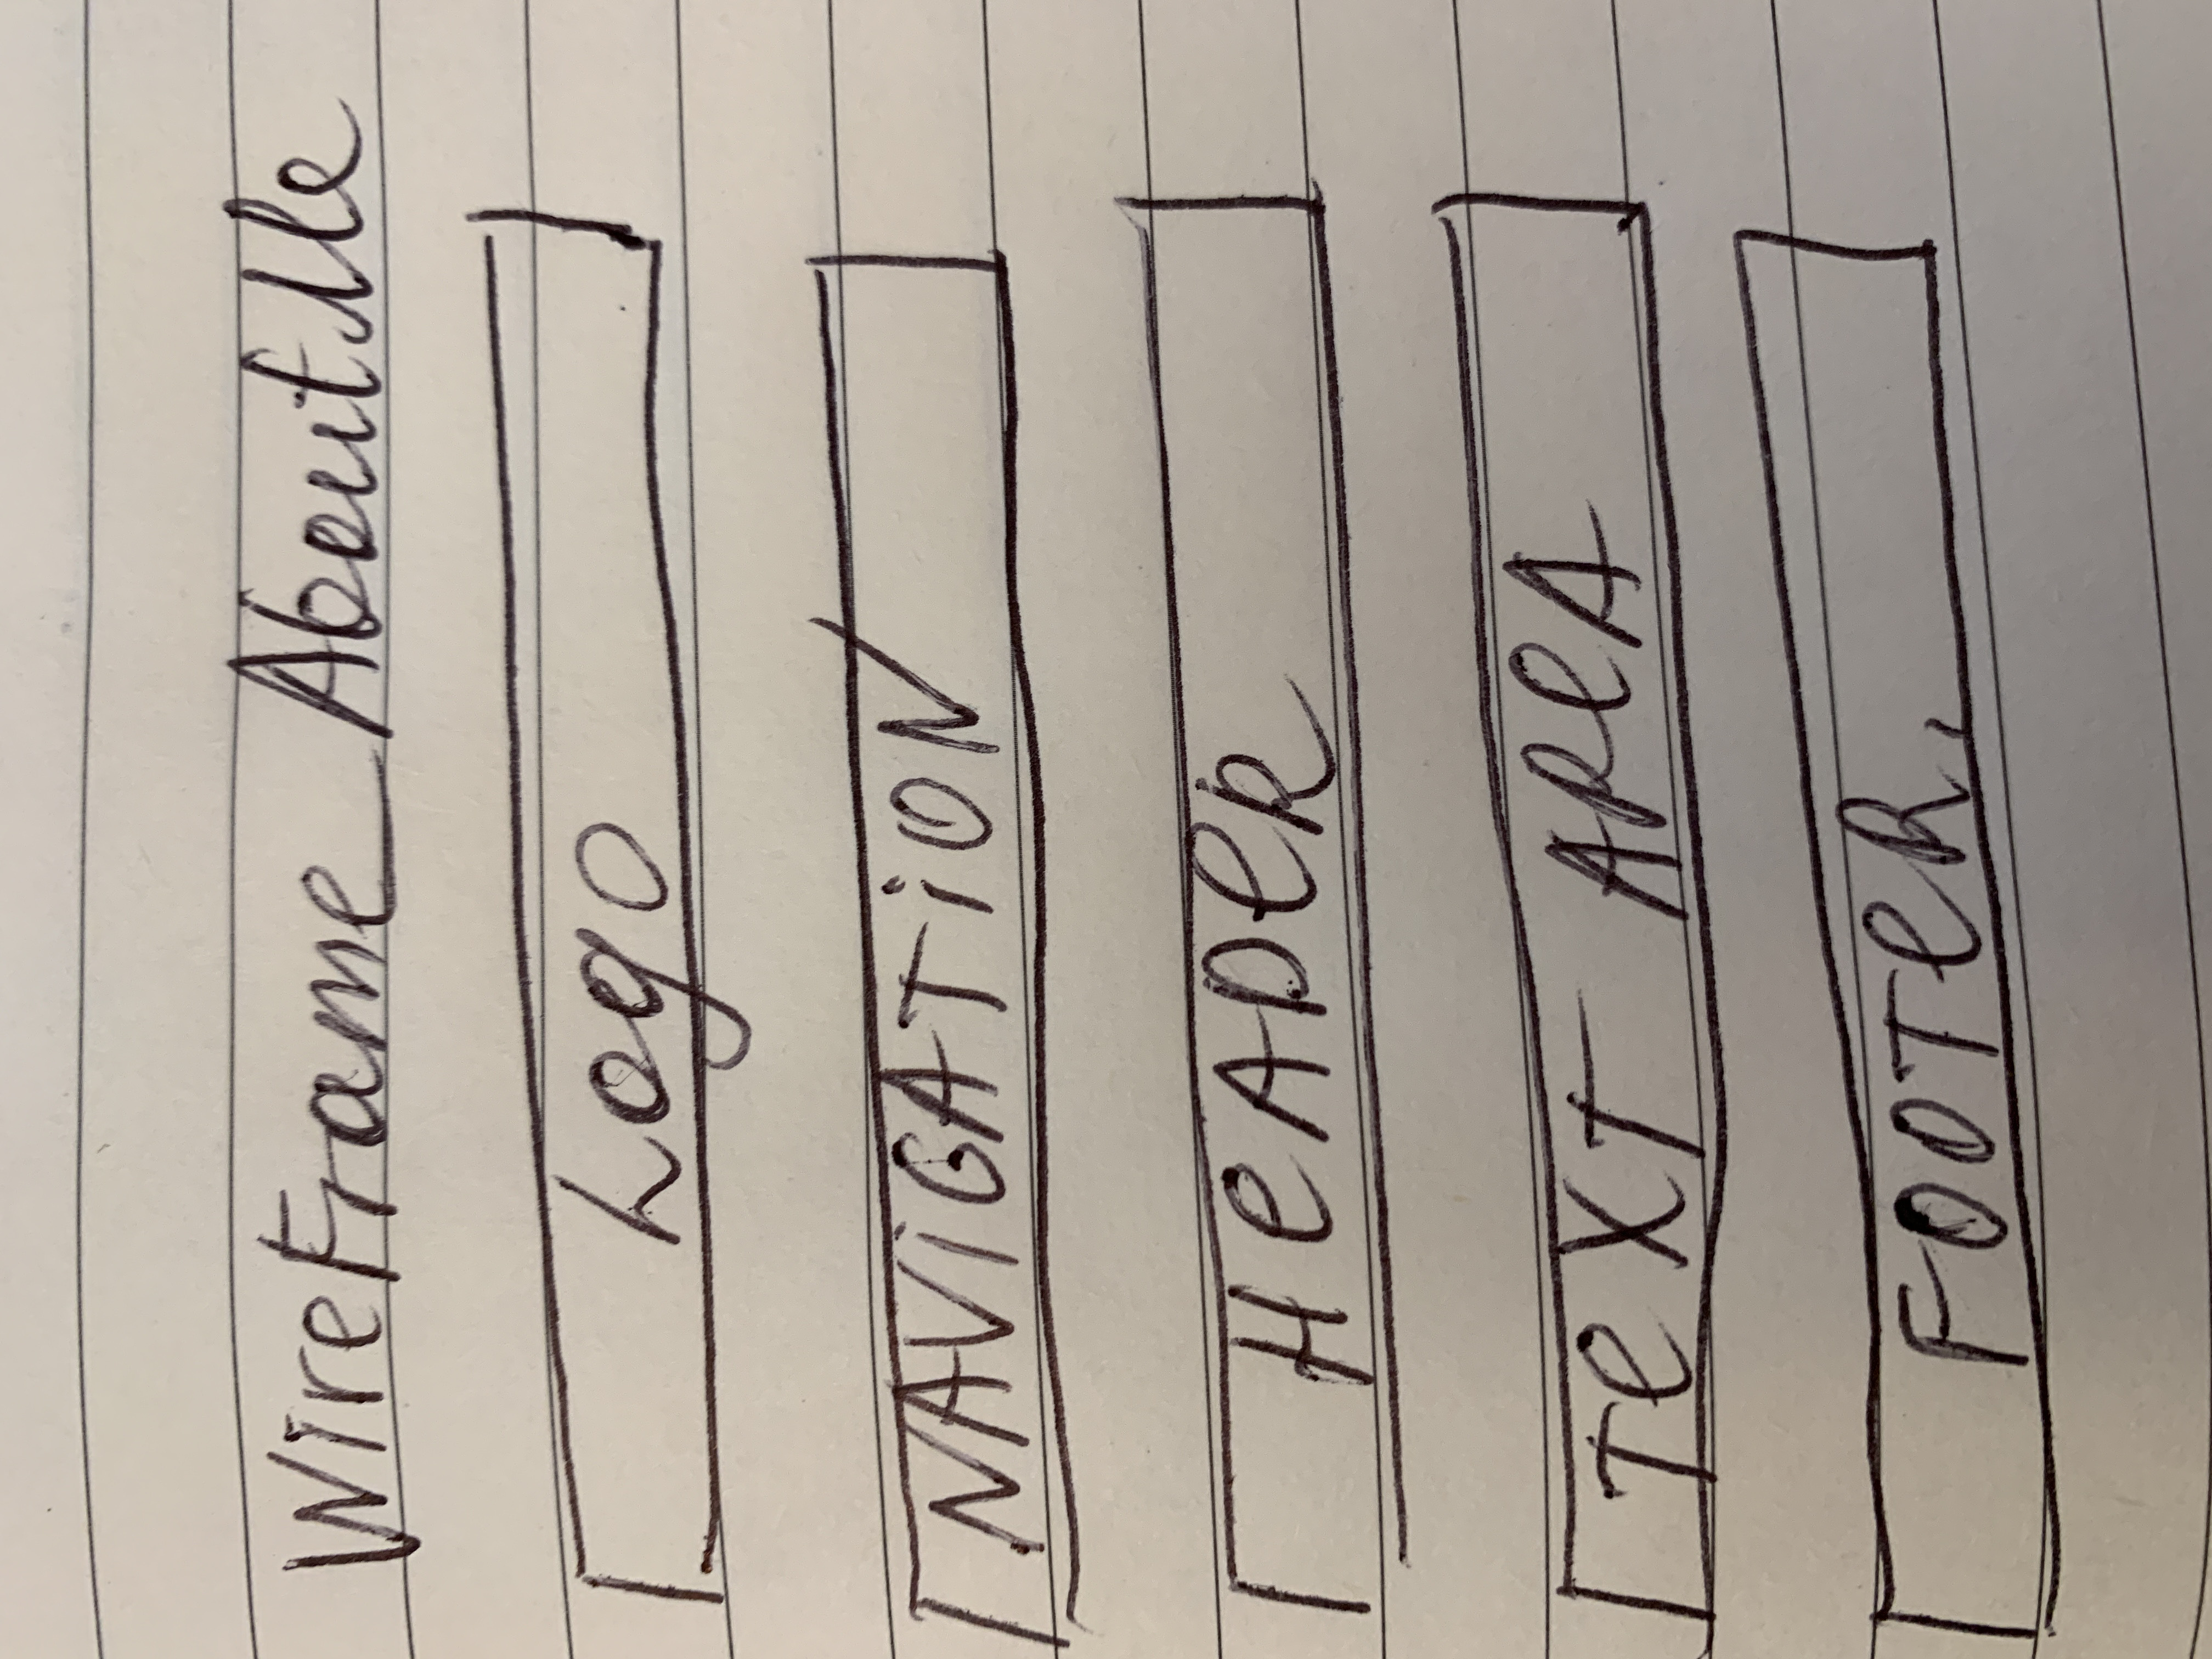 WireFrame AboutMe
Logo
NAViGATiON
HeADeR
TeXT AReA
FOOTeR.